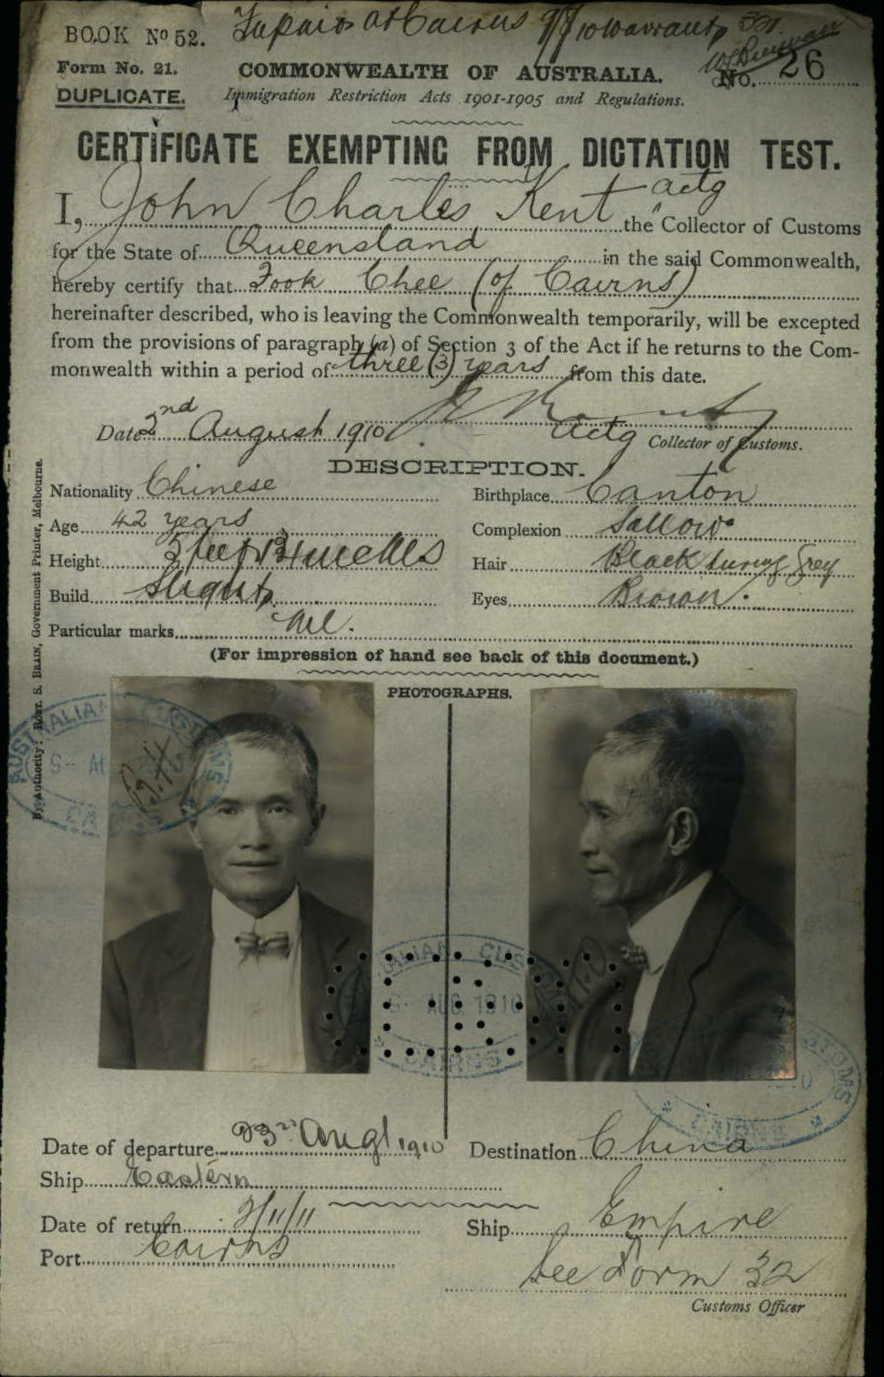 BOOK Nº 52.
at Cairns
No. 26
Form No. 21.
COMMONWEALTH OF AUSTRALIA.
DUPLICATE.
Immigration Restriction Acts 1901-1905 and Regulations.
CERTIFICATE EXEMPTING FROM DICTATION TEST.
I, John Charles Kent actg the Collector of Customs
for the State of Queensland in the said Commonwealth,
hereby certify that Fook Chee (of Cairns)
hereinafter described, who is leaving the Commonwealth temporarily, will be excepted
from the provisions of paragraph (a) of Section 3 of the Act if he returns to the Com-
monwealth within a period of three (3) years from this date.
Date 2nd August 1910
Actg Collector of Customs.
DESCRIPTION.
Nationality Chinese Birthplace Canton
Age 42 years Complexion Sallow
Height 5 feet inches Hair Black turng Grey
Build Slight Eyes Brown.
Particular marks Nil.
(For impression of hand see back of this document.)
PHOTOGRAPHS.
By Authority: ROBT. S. BRAIN, Government Printer, Melbourne.
AUSTRALIAN CUSTOMS
CAIRNS
AUG 1910
CAIRNS
Date of departure 23rd Augt 1910 Destination China
Ship Eastern
Date of return 2/11/11 Ship Empire
Port Cairns See Form 32
Customs Officer